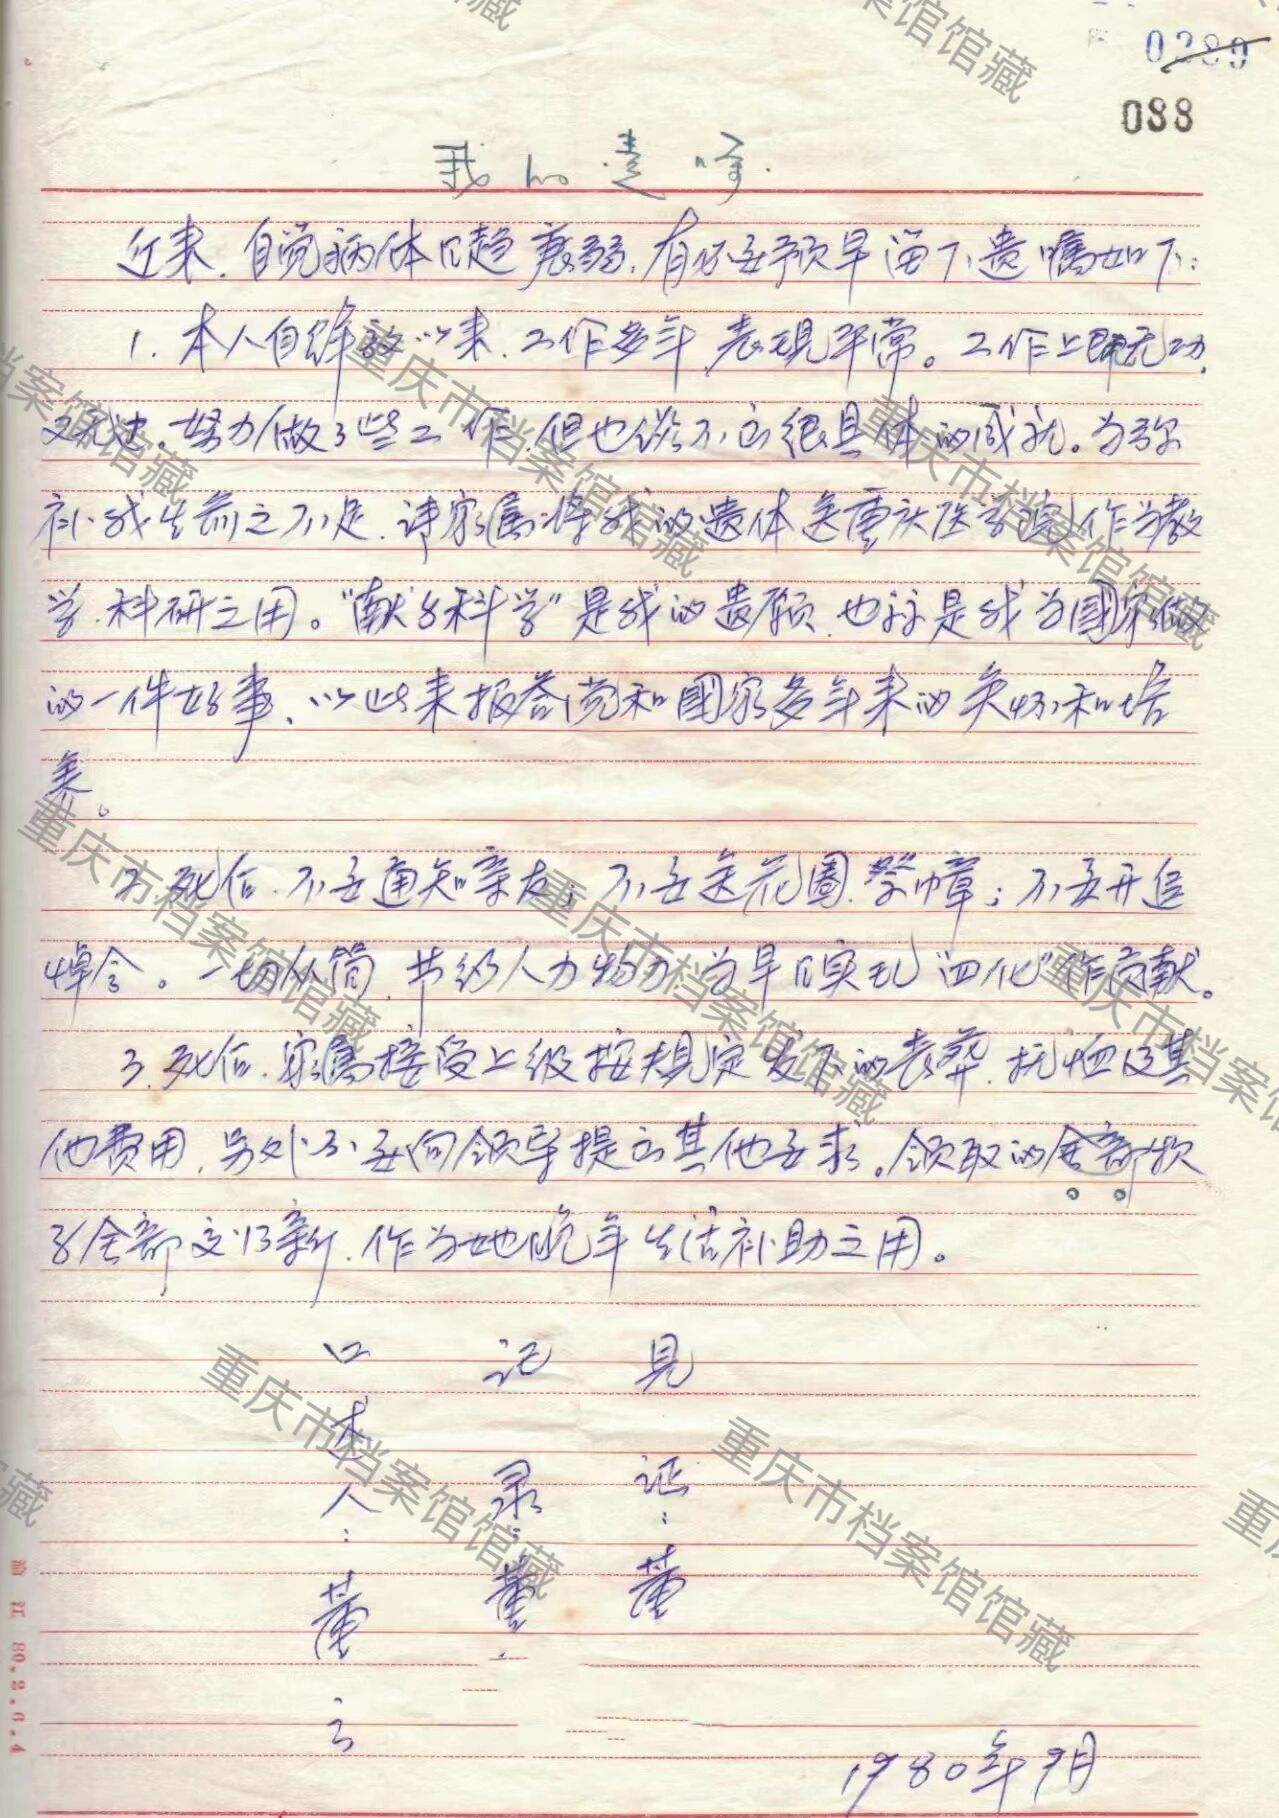 0289
088
我的遗嘱
近来，自觉病体日趋衰弱，有必要预早留下遗嘱如下：
1. 本人自解放以来，工作多年，表现平常。工作上既无功，
又无过。努力做了些工作，但也谈不上很具体的成就。为弥
补我生前之不足，请家属将我的遗体送重庆医学院作为教
学、科研之用。“献给科学”是我的遗愿，也算是我为国家做
的一件好事，以此来报答党和国家多年来的关怀和培
养。
2. 死后，不要通知亲友；不要送花圈、祭幛；不要开追
悼会。一切从简，节约人力物力，为早日实现“四化”作贡献。
3. 死后，家属接受上级按规定发下的丧葬、抚恤及其
他费用，另外不要向领导提出其他要求。领取的全部款
子全部交归新，作为她晚年生活补助之用。
口本人：董
记录：董
见证：董
1980年9月
渝江 80.2.6.4
重庆市档案馆馆藏